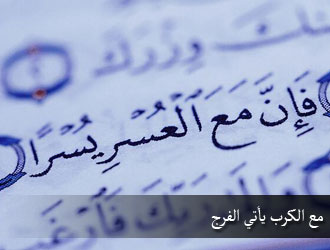 وِزْرَكَ
فَإِنَّ مَعَ ٱلْعُسْرِ يُسْرًا
رَبِّكَ فَٱرْغَب
مع الكرب يأتي الفرج